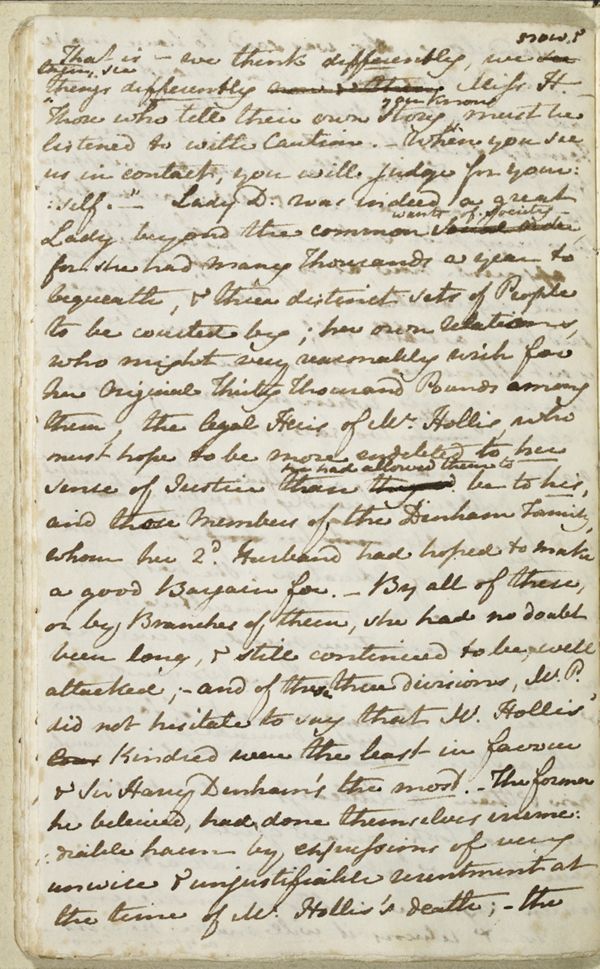 now, &
That is - we think differently, we see
them, see
things differently now & then, Miss H-
you know
"Those who tell their own Story, must be
listened to with Caution. - When you see
us in contact, you will judge for your:
:self. -" Lady D. was indeed a great
wants of Society -
Lady beyond the common
for she had many Thousands a year to
bequeath, & three distinct sets of People
to be courted by; her own relations,
who might very reasonably wish for
her Original Thirty Thousand Pounds among
them, the legal Heirs of Mr. Hollis, who
must hope to be more endebted to her
he had allowed them to
sense of Justice than be to his,
and those Members of the Denham Family,
whom her 2d. Husband had hoped to make
a good Bargain for. - By all of these,
or by Branches of them, she had no doubt
been long, & still continued to be, well
attacked; - and of these three divisions, Mr. P.
did not hesitate to say that Mr. Hollis'
Kindred were the least in favour
& Sir Harry Denham's the most. - The former
he beleived, had done themselves irreme:
:diable harm by expressions of very
unwise & unjustifiable resentment at
the time of Mr. Hollis's death; - the